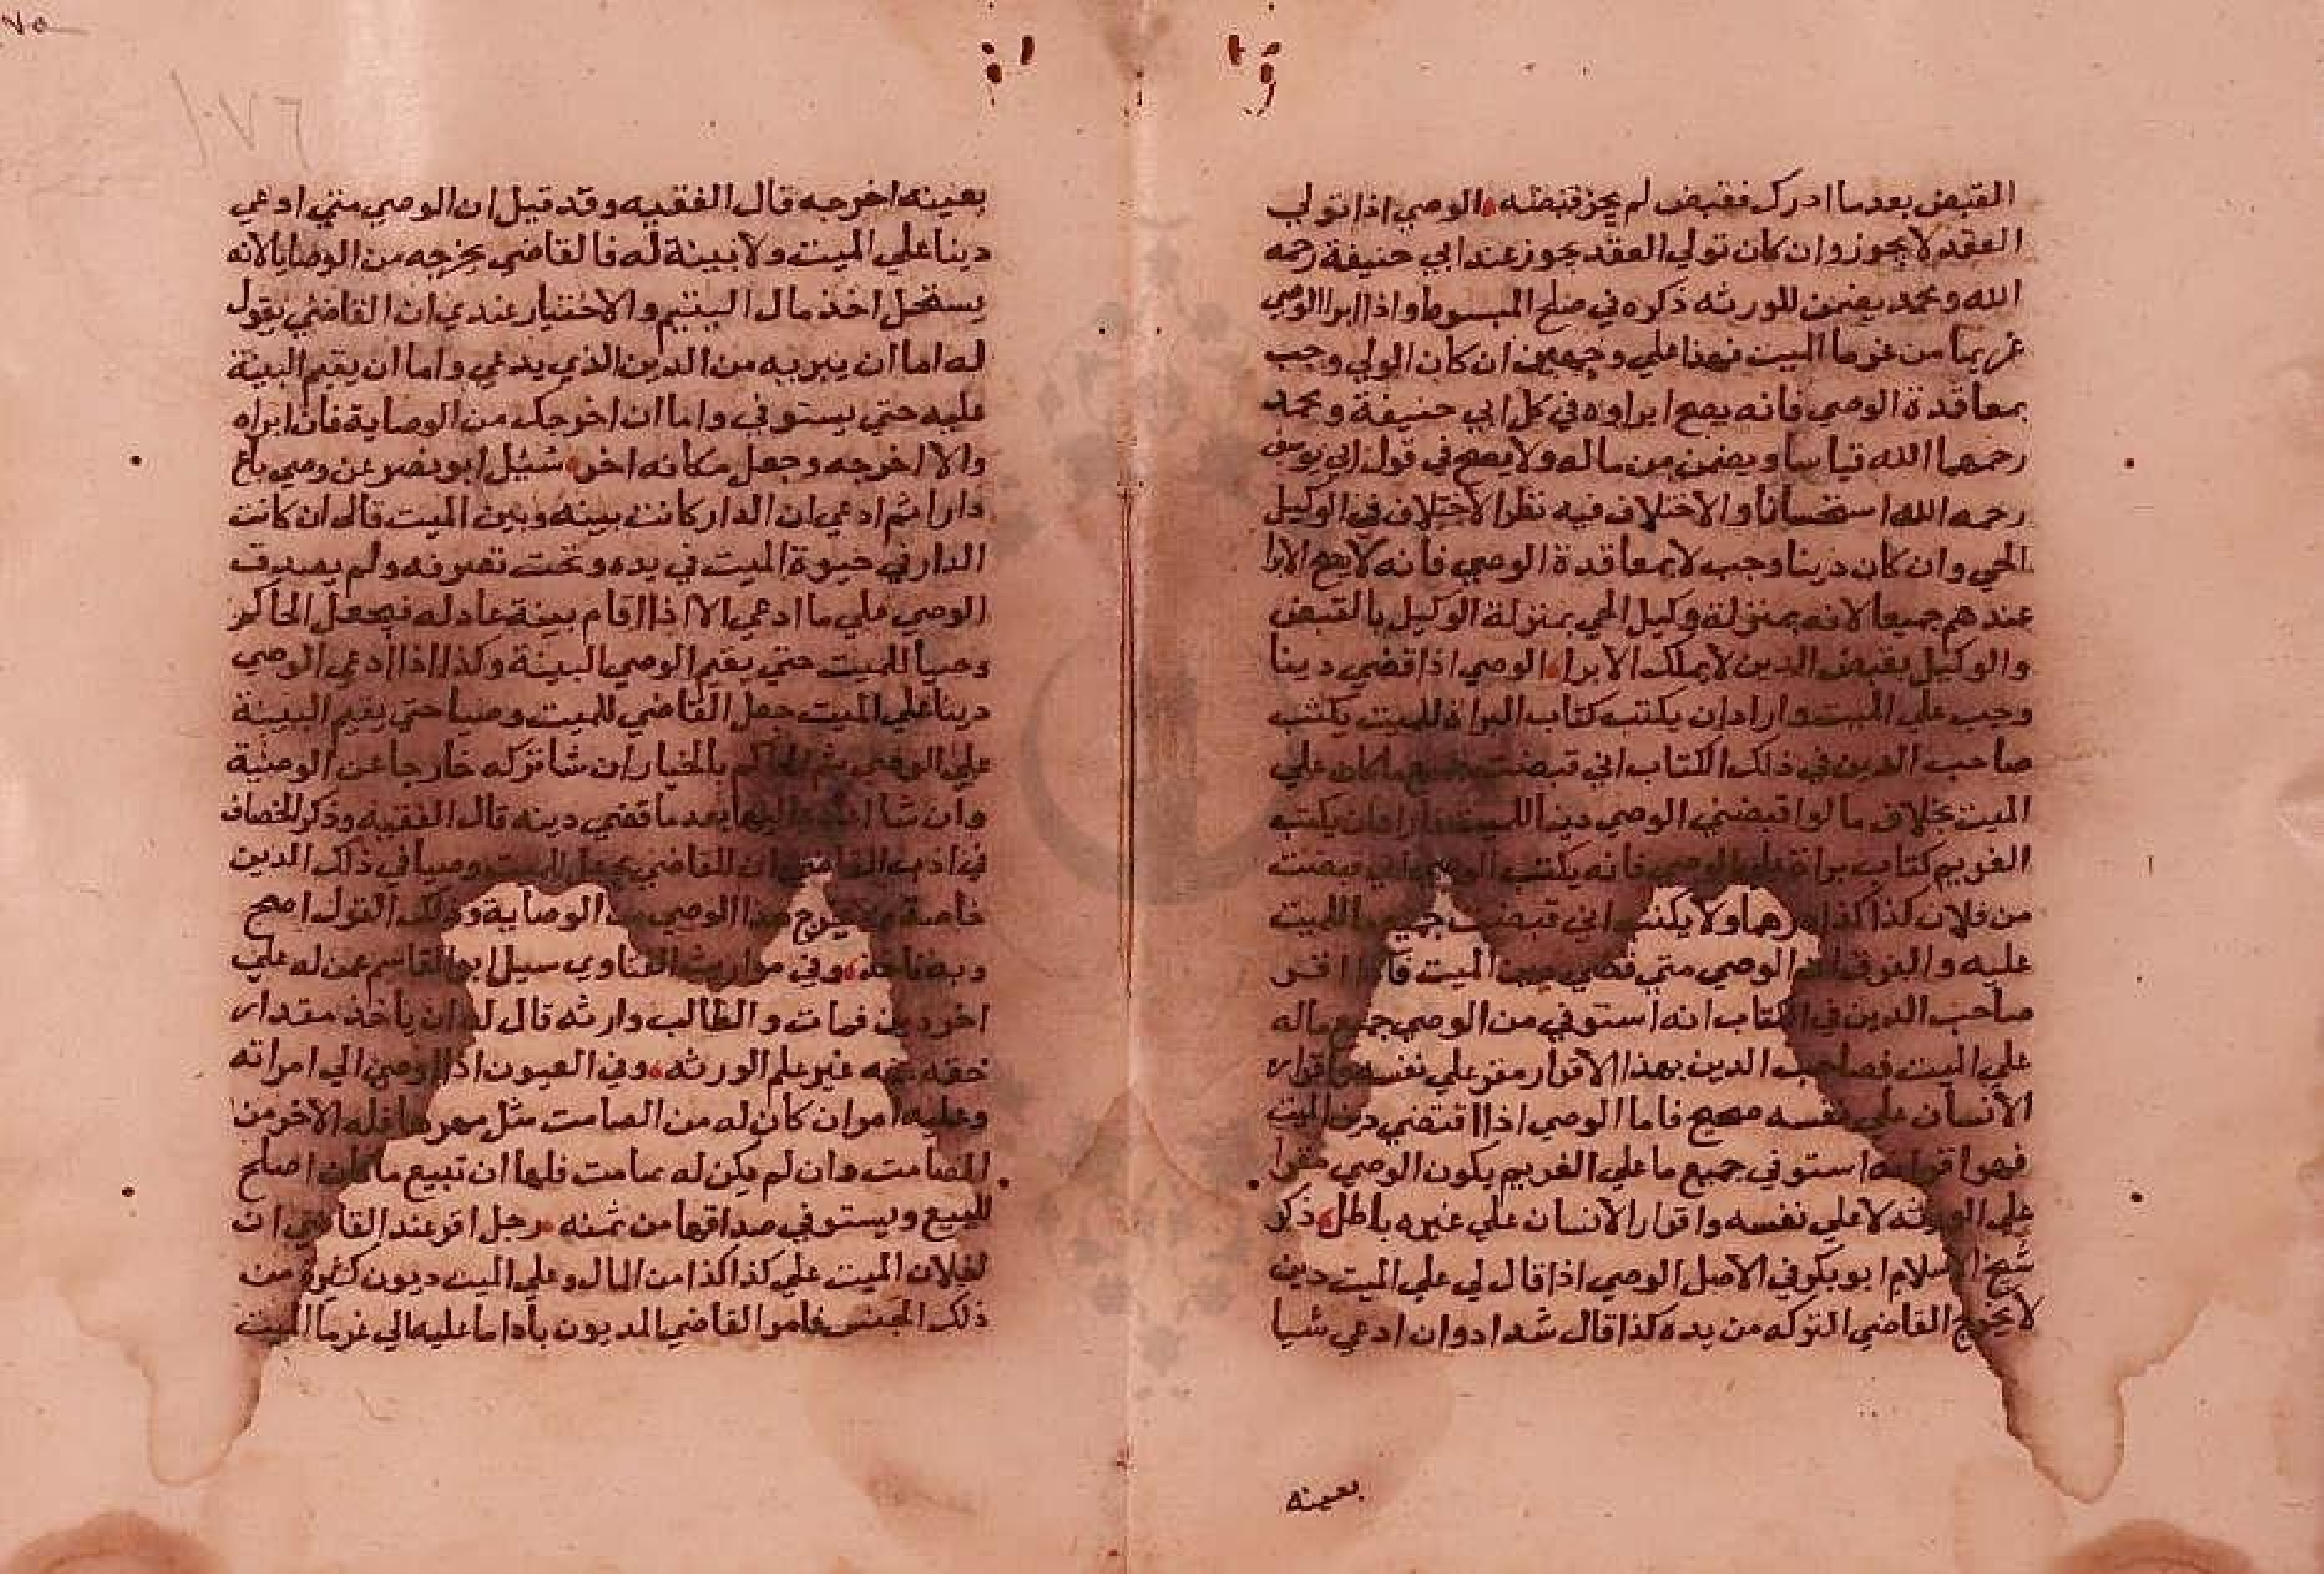 القبض بعدما ادرك فقبض لم يجز قبضه الوصي اذا تولي
العقد لا يجوز وان كان تولي العقد يجوز عند ابي حنيفة رحمه
الله ومحمد يضمن للورثه ذكره في صلح المبسوط واذا ابرا الوصي
غريما من غرما الميت فهذا علي وجهين ان كان الولي وجب
بمعاقدة الوصي فانه يصح ابراوه في كل ابي حنيفة ومحمد
رحمهما الله قياسا ويضمن من ماله ولا يصح في قول ابي يوسف
رحمه الله استحسانا والاختلاف فيه نظرا لاختلاف في الوكيل
الحي وان كان دينا وجب لا بمعاقدة الوصي فانه لا يصح الابرا
عندهم جميعا لانه بمنزلة وكيل الحي بمنزلة الوكيل بالقبض
والوكيل بقبض الدين لا يملك الابرا الوصي اذا قضي دينا
وجب علي الميت واراد ان يكتب كتاب البراة للميت يكتب
صاحب الدين في ذلك الكتاب اني قبضت جميع ما كان علي
الميت بخلاف ما لو اقبضني الوصي دينا للميت واراد ان يكتب
الغريم كتاب براة علي الوصي فانه يكتب الوصي اني قبضت
من فلان كذا كذا درهما ولا يكتب اني قبضت جميع ما للميت
عليه والفرق ان الوصي متي قضي دين الميت فاذا اقر
صاحب الدين في الكتاب انه استوفي من الوصي جميع ماله
علي الميت فصاحب الدين بهذا الاقرار مقر علي نفسه واقرار
الانسان علي نفسه صحيح فاما الوصي اذا اقتضي دين الميت
فهو اقرانه استوفي جميع ما علي الغريم يكون الوصي مقرا
علي الورثه لا علي نفسه واقرار الانسان علي غيره باطل ذكر
شيخ الاسلام ابو بكر في الاصل الوصي اذا قال لي علي الميت دين
لا يخرج القاضي التركه من يده كذا قال شداد وان ادعي شيا
بعينه
بعينه اخرجه قال الفقيه وقد قيل ان الوصي متي ادعي
دينا علي الميت ولا بينة له فالقاضي يخرجه من الوصايا لانه
يستحل اخذ مال اليتيم والاختيار عندي ان القاضي يقول
له اما ان يبريه من الدين الذي يدعي واما ان يقيم البينة
عليه حتي يستوفي واما ان اخرجك من الوصاية فان ابراه
والا اخرجه وجعل مكانه اخر سئيل ابو نصر عن وصي باع
دارا ثم ادعي ان الدار كانت بينه وبين الميت قال ان كانت
الدار في حيوة الميت في يده وتحت تصرفه ولم يصدق
الوصي علي ما ادعي الا اذا اقام بينة عادله فيجعل الحاكم
وصيا للميت حتي يقيم الوصي البينة وكذا اذا ادعي الوصي
دينا علي الميت جعل القاضي للميت وصيا حتي يقيم البينة
علي الوصي ثم الحاكم بالخيار ان شا تركه خارجا عن الوصية
وان شا اعاده اليها بعد ما قضي دينه قال الفقيه وذكر الخصاف
في ادب القاضي ان للقاضي يجعل للميت وصيا في ذلك الدين
خاصة ولا يخرج هذا الوصي من الوصاية وذلك القول اصح
وبه ناخذ وفي مواريث الفتاوي سيل ابو القاسم عمن له علي
اخر دين فمات والطالب وارثه قال له ان ياخذ مقدار
حقه غير علم الورثه وفي العيون اذا اوصي الي امراته
وعليه امر ان كان له من الصامت مثل مهرها فله الاخر من
الصامت وان لم يكن له صامت فلها ان تبيع ما كان اصلح
للبيع ويستوفي صداقها من ثمنه رجل اقر عند القاضي ان
لفلان الميت علي كذا كذا من المال وعلي الميت ديون كثيرة من
ذلك الجنس فامر القاضي المديون باداما عليه الي غرما الميت